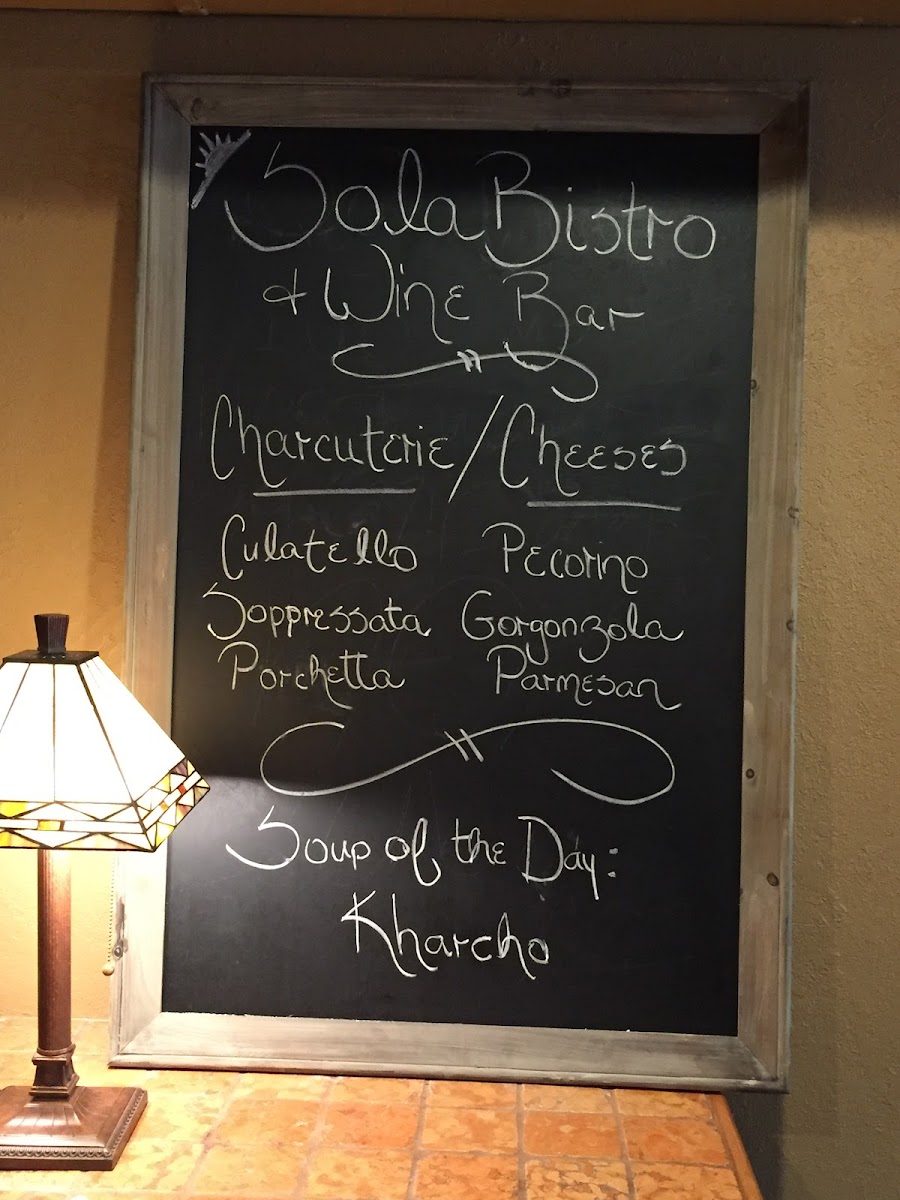 Sola Bistro
& Wine Bar
Charcuterie / Cheeses
Culatello Pecorino
Soppressata Gorgonzola
Porchetta Parmesan
Soup of the Day:
Kharcho